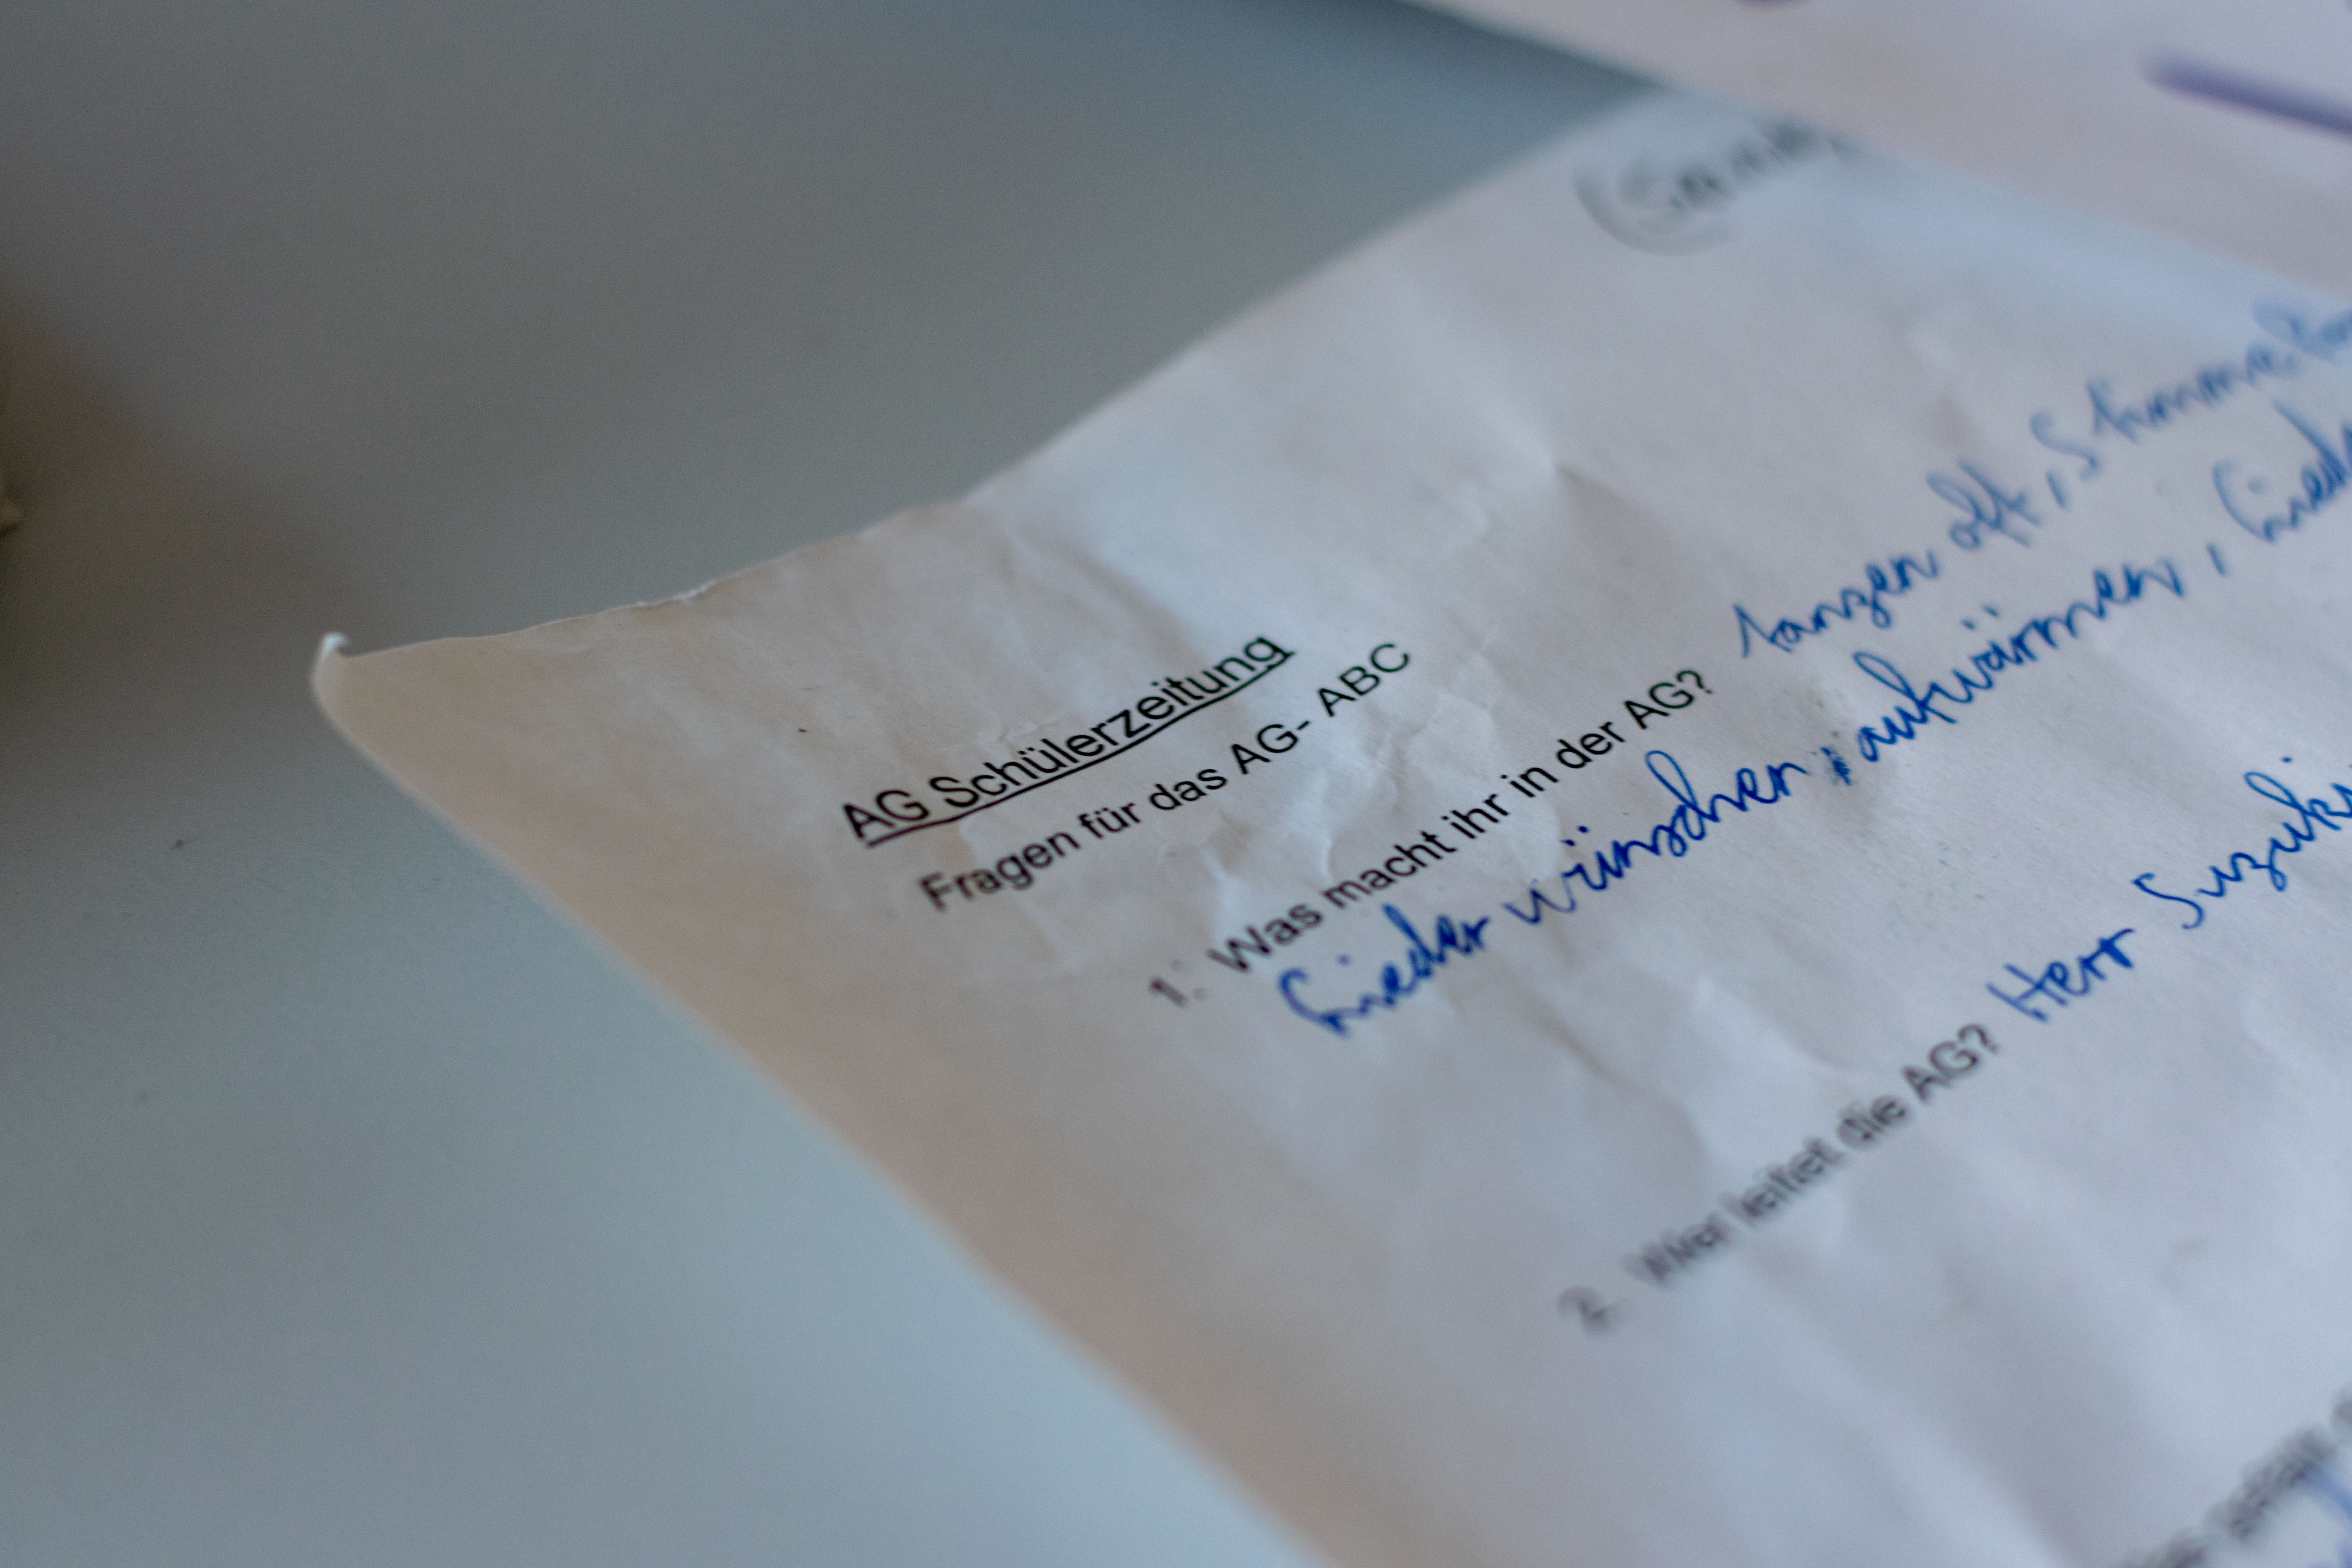 AG Schülerzeitung
Fragen für das AG- ABC
1. Was macht ihr in der AG? tanzen oft,
Lieder wünschen, aufwärmen,
2. Wer leitet die AG? Herr Suzuki